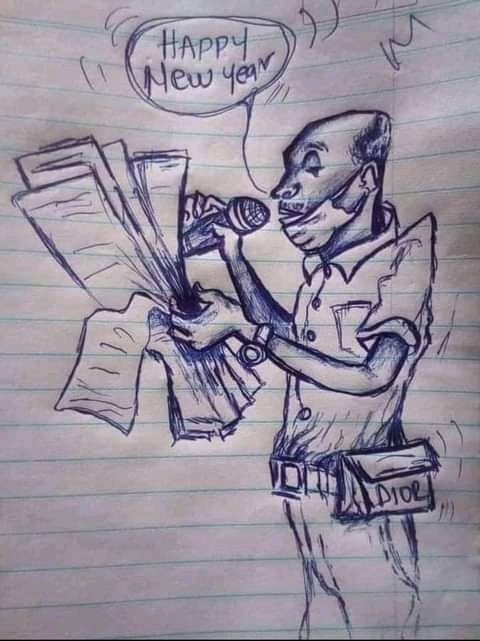 HAPPY
New year
DIOR